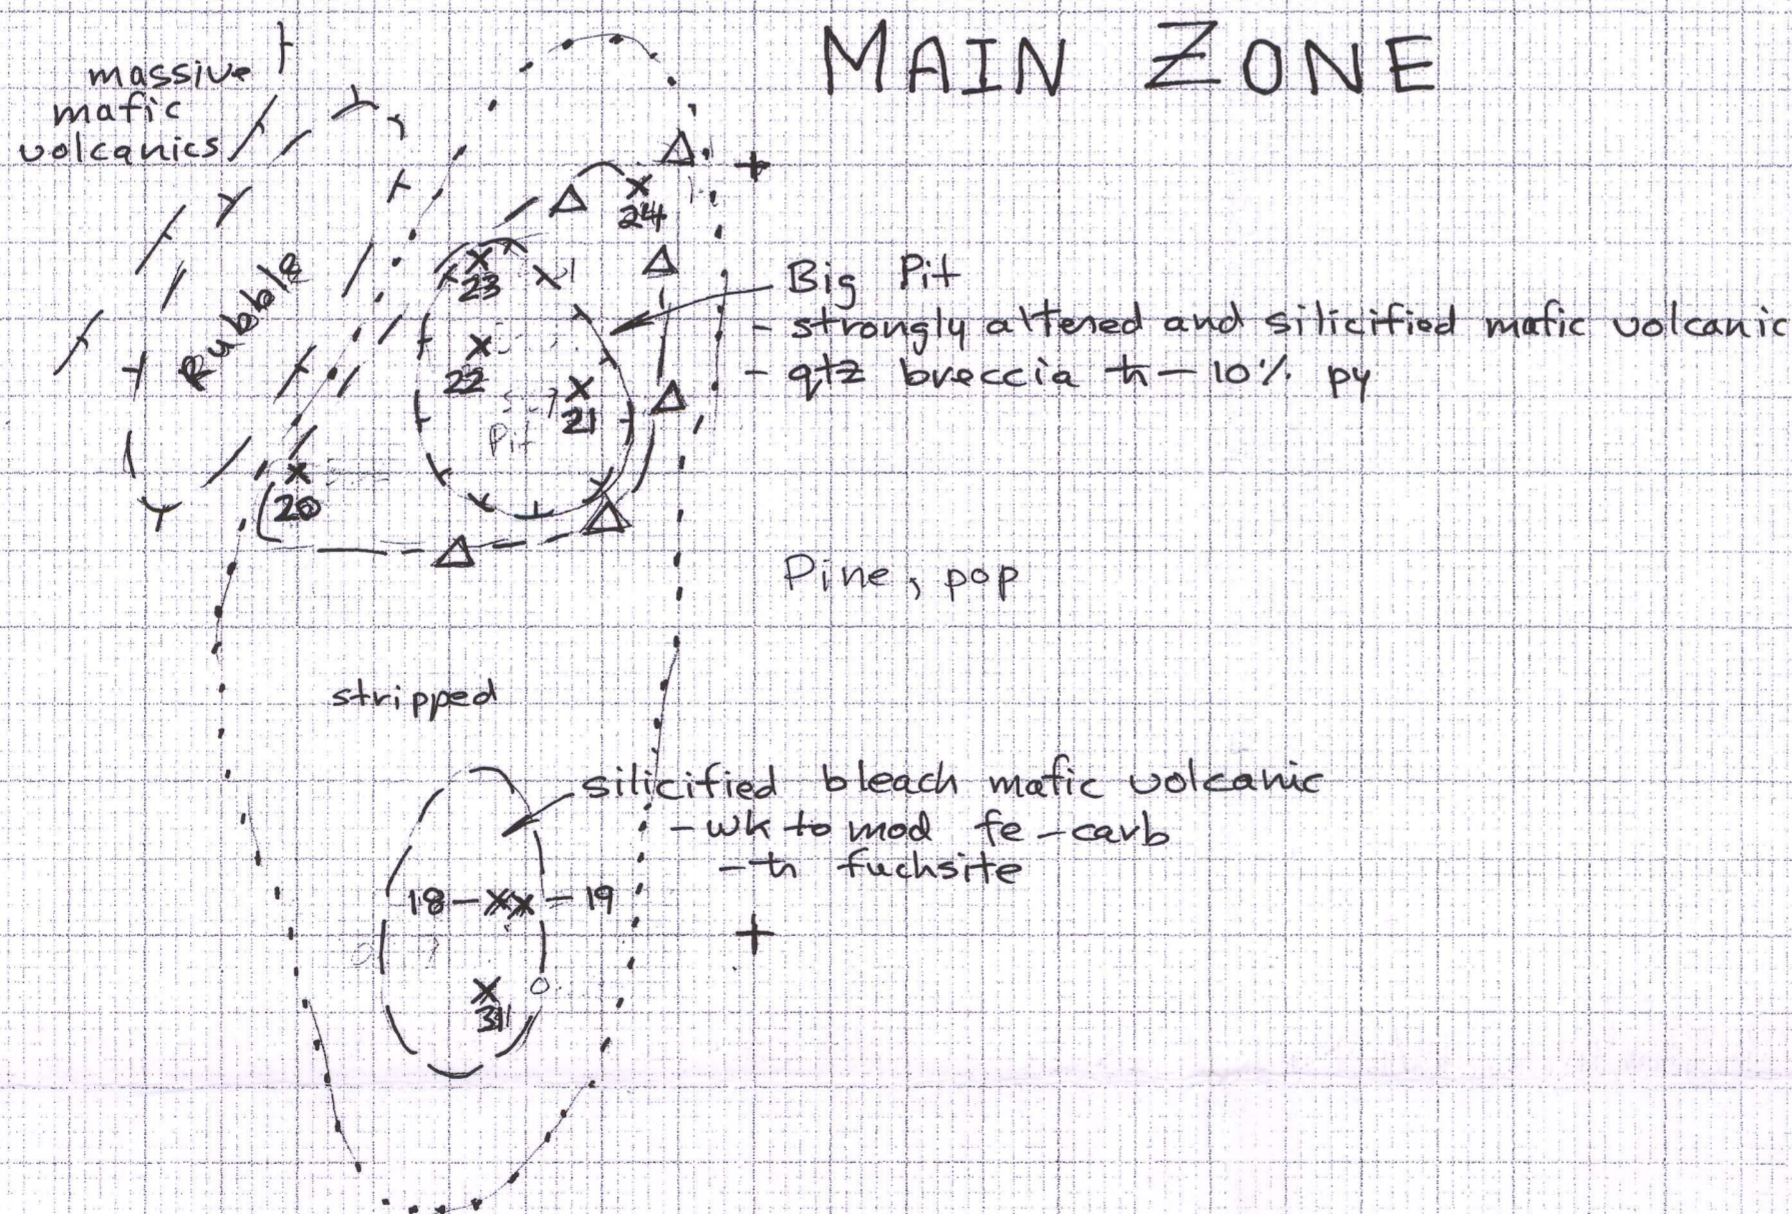 MAIN ZONE
massive
mafic
volcanics
Rubble
24
23
22
21
Pit
20
Big Pit
- strongly altered and silicified mafic volcanic
- qtz breccia tr - 10% py
Pine, pop
stripped
silicified bleach mafic volcanic
- wk to mod fe-carb
- tr fuchsite
18-xx-19
31